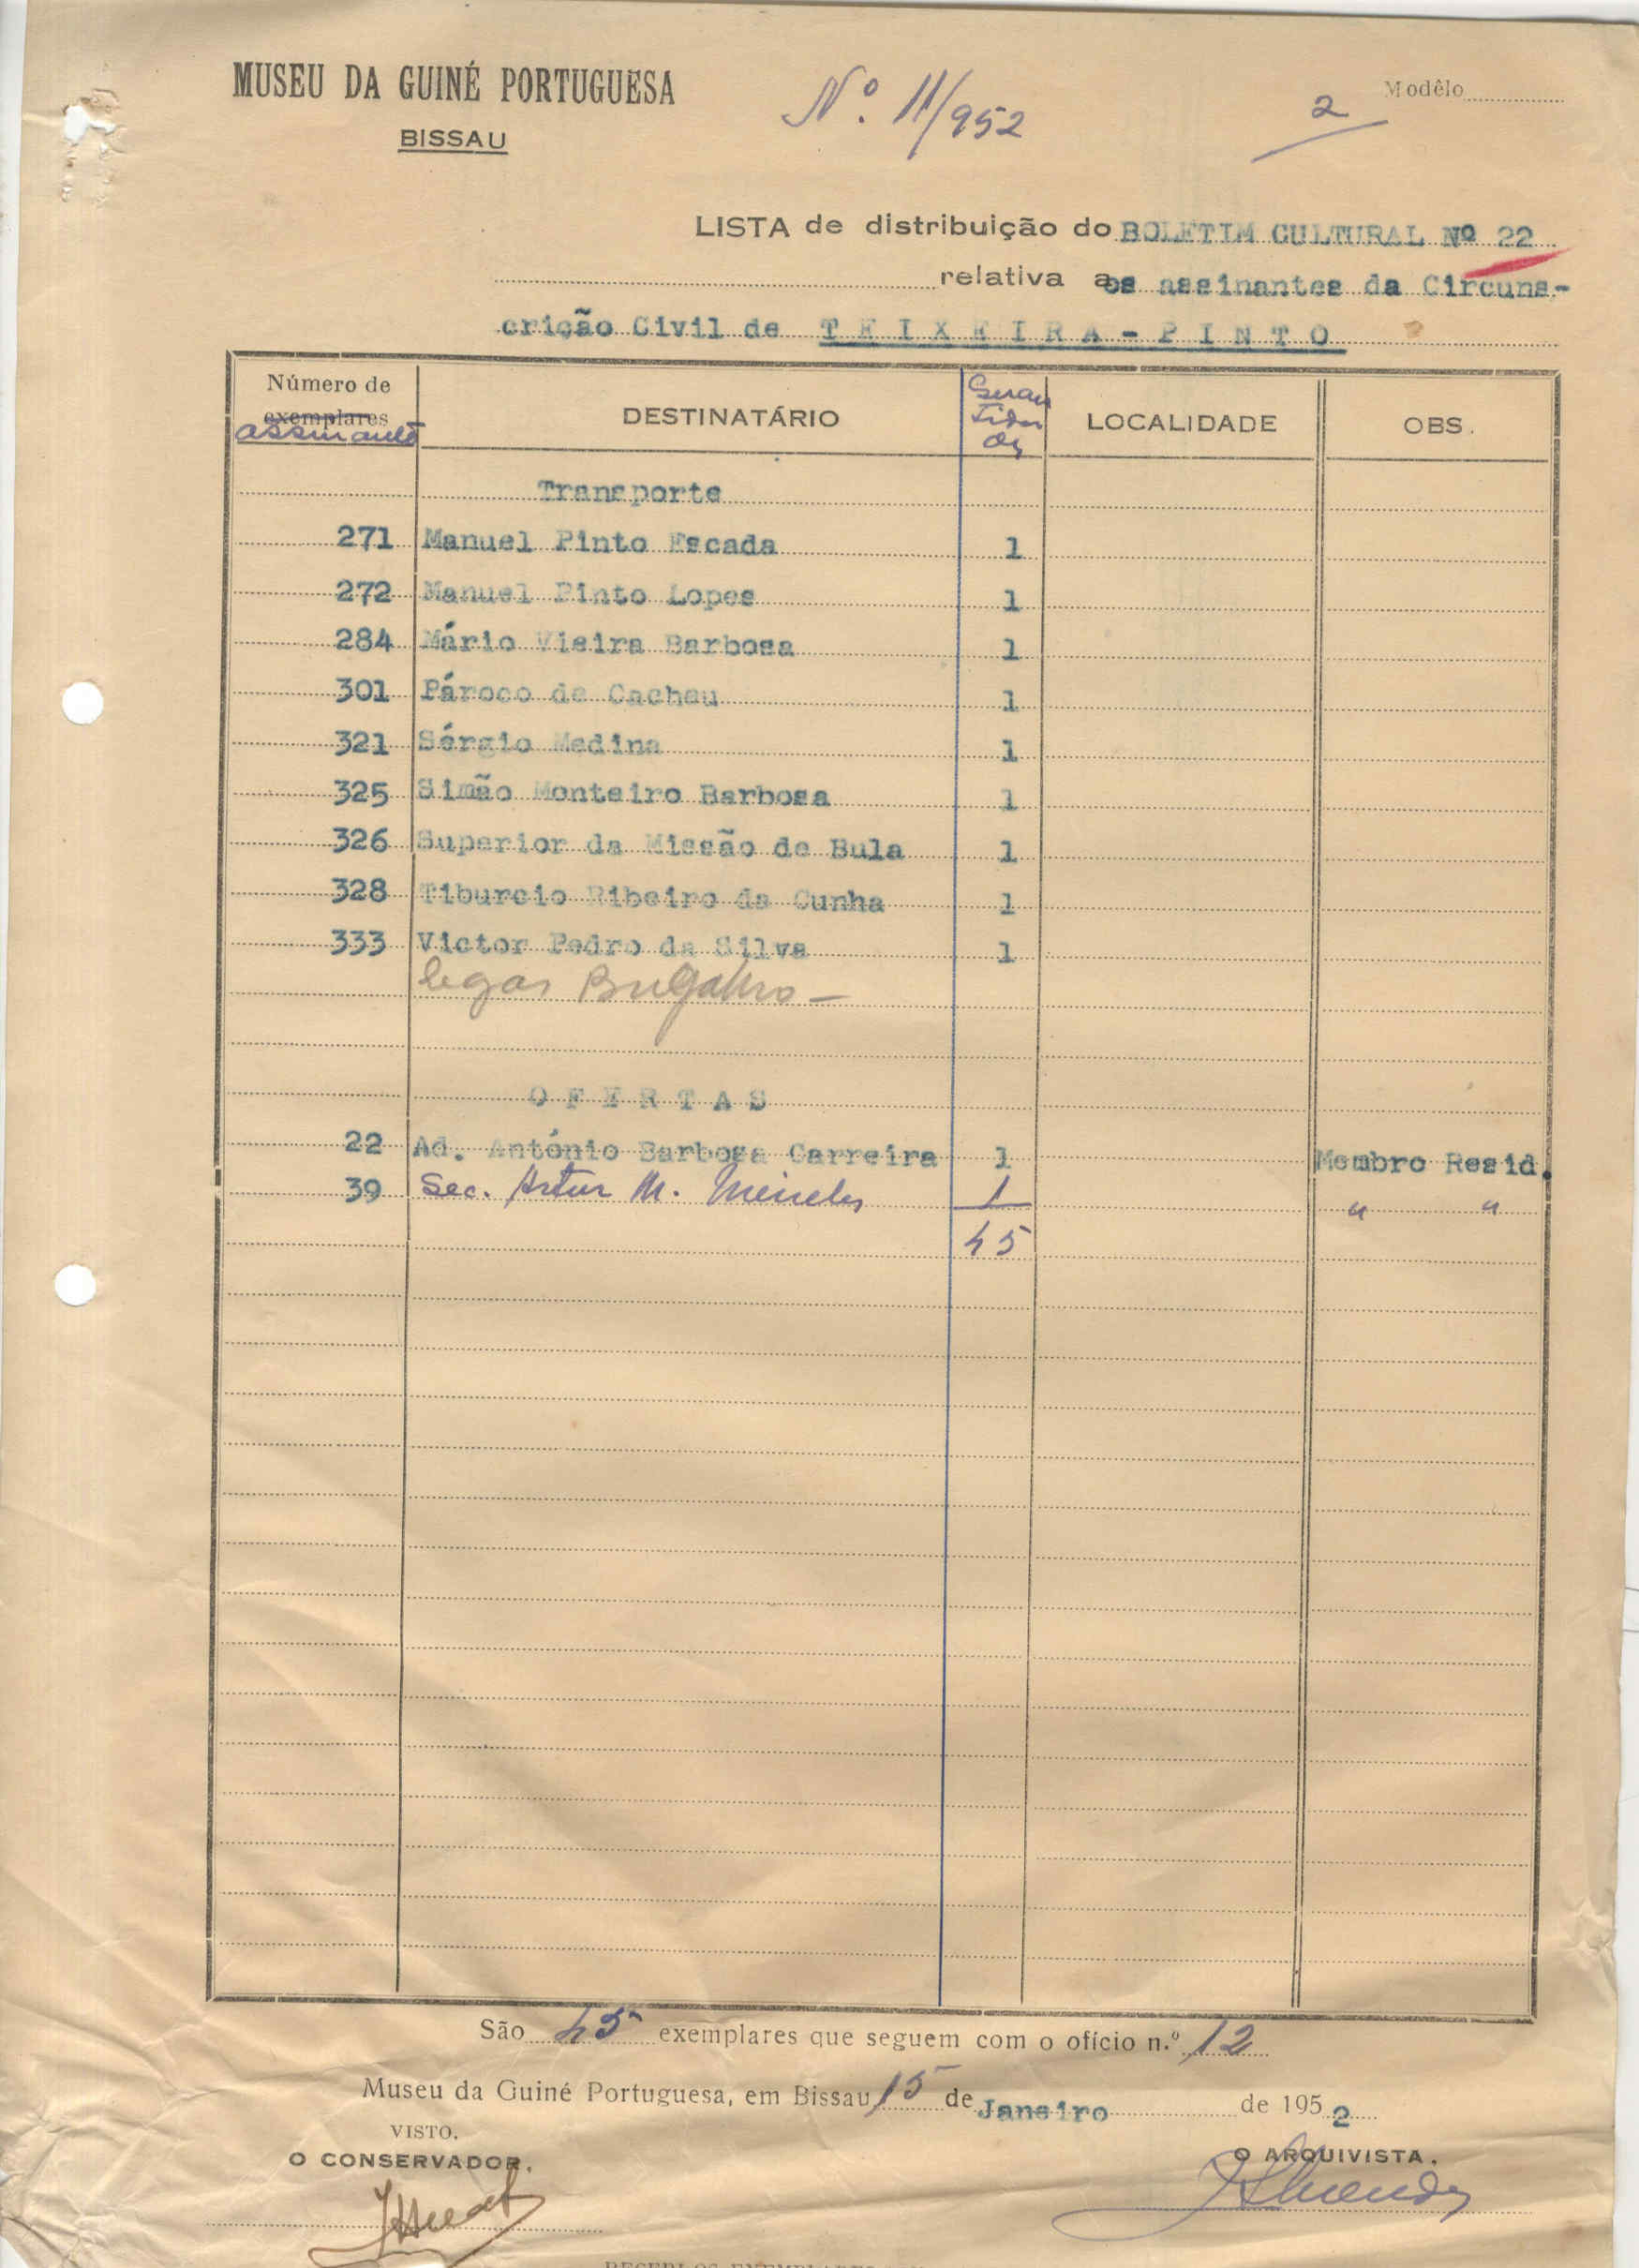 MUSEU DA GUINÉ PORTUGUESA
BISSAU
Nº. 11/952
2
Modêlo
LISTA de distribuição do BOLETIM CULTURAL Nº 22
relativa aos assinantes da Circuns-
crição Civil de TEIXEIRA-PINTO
Número de exemplares assinante DESTINATÁRIO LOCALIDADE OBS.
Transporte
271 Manuel Pinto Escada 1
272 Manuel Pinto Lopes 1
284 Mário Vieira Barbosa 1
301 Pároco de Cacheu 1
321 Sérgio Medina 1
325 Simão Monteiro Barbosa 1
326 Superior da Missão de Bula 1
328 Tiburcio Ribeiro da Cunha 1
333 Victor Pedro da Silva 1
OFERTAS
22 Ad. António Barbosa Carreira 1 Membro Resid.
39 Sec. Artur M. Meireles 1 " "
45
São 45 exemplares que seguem com o ofício n.º 12
Museu da Guiné Portuguesa, em Bissau 15 de Janeiro de 1952
VISTO.
O CONSERVADOR,
O ARQUIVISTA.